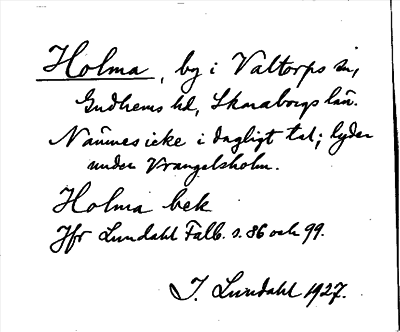 Holma, by i Valtorps sn,
Gudhems hd, Skaraborgs län.
Nämnes icke i dagligt tal; lyder
under Vrangelsholm.
Holma bek
Jfr Lundahl Falb. s. 86 och 99.
I. Lundahl 1927.